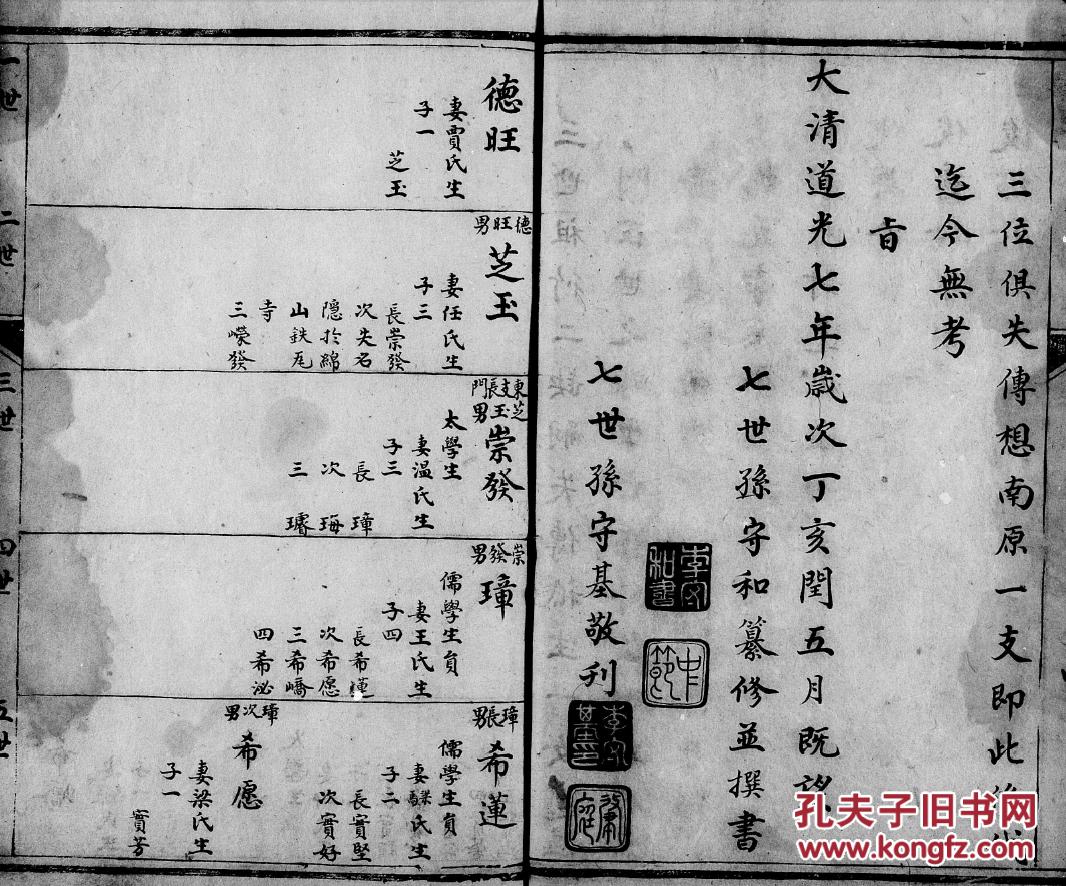 三位俱失傳想南原一支即此後
迄今無考
旹
大清道光七年歲次丁亥閏五月既望
七世孫守和纂修並撰書
李守和書
中節
七世孫守基敬刊
李守基
一世
二世
三世
四世
五世
德旺
妻賈氏生
子一
芝玉
德旺男
芝玉
妻任氏生
子三
長崇發
次失名
隱於綿
山鉄瓦
寺
三嶸發
東支長門
芝玉男
崇發
太學生
妻温氏生
子三
長 璋
次 珻
三 璿
崇發男
璋
儒學生員
妻王氏生
子四
長希蓮
次希愿
三希嶠
四希泌
璋長男
希蓮
儒學生員
妻鄈氏生
子二
長實堅
次實好
璋次男
希愿
妻梁氏生
子一
實芳
孔夫子旧书网
www.kongfz.com